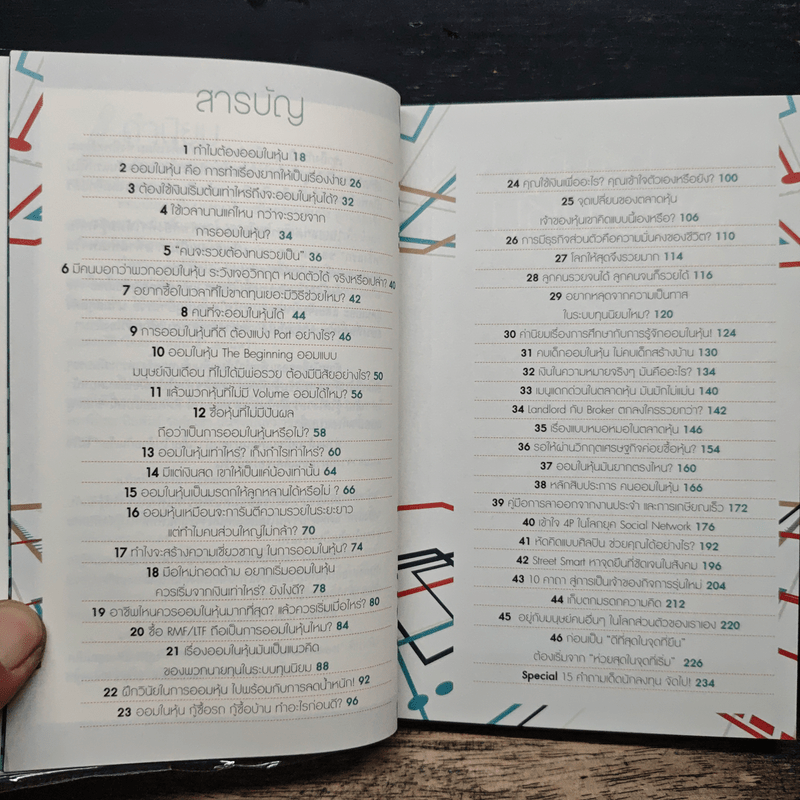 สารบัญ
1 ทำไมต้องออมในหุ้น 18
2 ออมในหุ้น คือ การทำเรื่องยากให้เป็นเรื่องง่าย 26
3 ต้องใช้เงินเริ่มต้นเท่าไหร่ถึงจะออมในหุ้นได้? 32
4 ใช้เวลานานแค่ไหน กว่าจะรวยจาก
การออมในหุ้น? 34
5 "คนจะรวยต้องทนรวยเป็น" 36
6 มีคนบอกว่าพวกออมในหุ้น ระวังเจอวิกฤต หมดตัวได้ จริงหรือเปล่า? 40
7 อยากซื้อในเวลาที่ไม่ขาดทุนเยอะมีวิธีช่วยไหม? 42
8 คนที่จะออมในหุ้นได้ 44
9 การออมในหุ้นที่ดี ต้องแบ่ง Port อย่างไร? 46
10 ออมในหุ้น The Beginning ออมแบบ
มนุษย์เงินเดือน ที่ไม่ได้มีพ่อรวย ต้องมีนิสัยอย่างไร? 50
11 แล้วพวกหุ้นที่ไม่มี Volume ออมได้ไหม? 56
12 ซื้อหุ้นที่ไม่มีปันผล
ถือว่าเป็นการออมในหุ้นหรือไม่? 58
13 ออมในหุ้นเท่าไหร่? เก็งกำไรเท่าไหร่? 60
14 มีแต่เงินสด เขาให้เป็นแค่น้องเท่านั้น 64
15 ออมในหุ้นเป็นมรดกให้ลูกหลานได้หรือไม่ ? 66
16 ออมในหุ้นเหมือนจะการันตีความรวยในระยะยาว
แต่ทำไมคนส่วนใหญ่ไม่กล้า? 70
17 ทำไงจะสร้างความเชี่ยวชาญ ในการออมในหุ้น? 74
18 มือใหม่ถอดด้าม อยากเริ่มออมในหุ้น
ควรเริ่มจากเงินเท่าไหร่? ยังไงดี? 78
19 อาชีพไหนควรออมในหุ้นมากที่สุด? แล้วควรเริ่มเมื่อไหร่? 80
20 ซื้อ RMF/LTF ถือเป็นการออมในหุ้นไหม? 84
21 เรื่องออมในหุ้นมันเป็นแนวคิด
ของพวกนายทุนในระบบทุนนิยม 88
22 ฝึกวินัยในการออมหุ้น ไปพร้อมกับการลดน้ำหนัก! 92
23 ออมในหุ้น กู้ซื้อรถ กู้ซื้อบ้าน ทำอะไรก่อนดี? 96
24 คุณใช้เงินเพื่ออะไร? คุณเข้าใจตัวเองหรือยัง? 100
25 จุดเปลี่ยนของตลาดหุ้น
เจ้าของหุ้นเขาคิดแบบนี้เองหรือ? 106
26 การมีธุรกิจส่วนตัวคือความมั่นคงของชีวิต? 110
27 โลกให้สุดจึงรวยมาก 114
28 ลูกคนรวยจนได้ ลูกคนจนก็รวยได้ 116
29 อยากหลุดจากความเป็นทาส
ในระบบทุนนิยมไหม? 120
30 ค่านิยมเรื่องการศึกษากับการรู้จักออมในหุ้น! 124
31 คบเด็กออมในหุ้น ไม่คบเด็กสร้างบ้าน 130
32 เงินในความหมายจริงๆ มันคืออะไร? 134
33 เมนูแดกด่วนในตลาดหุ้น มันมักไม่แม่น 140
34 Landlord กับ Broker ตกลงใครรวยกว่า? 142
35 เรื่องแบบหมอหมอในตลาดหุ้น 146
36 รอให้ผ่านวิกฤตเศรษฐกิจค่อยซื้อหุ้น? 154
37 ออมในหุ้นมันยากตรงไหน? 160
38 หลักสิบประการ คนออมในหุ้น 166
39 คู่มือการลาออกจากงานประจำ และการเกษียณเร็ว 172
40 เข้าใจ 4P ในโลกยุค Social Network 176
41 หัดคิดแบบศิลปิน ช่วยคุณได้อย่างไร? 192
42 Street Smart หาจุดยืนที่ชัดเจนในสังคม 196
43 10 คาถา สู่การเป็นเจ้าของกิจการรุ่นใหม่ 204
44 เก็บตกมรดกความคิด 212
45 อยู่กับมนุษย์คนอื่นๆ ในโลกส่วนตัวของเราเอง 220
46 ก่อนเป็น "ดีที่สุดในจุดที่ยืน"
ต้องเริ่มจาก "ห่วยสุดในจุดที่เริ่ม" 226
Special 15 คำถามเด็ดนักลงทุน จัดไป! 234